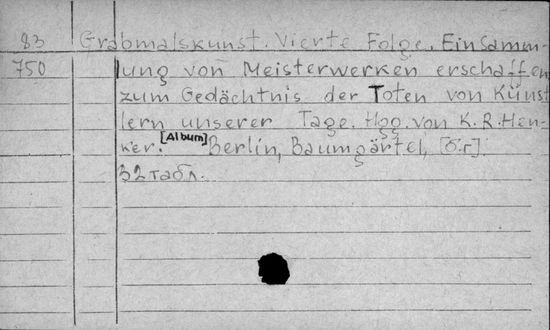 83 Grabmalskunst. Vierte Folge. Ein Samm-
750 lung von Meisterwerken erschaffen
zum Gedächtnis der Toten von Künst
lern unserer Tage. Hgg. von K. R. Hen-
ker. [Album] Berlin, Baumgärtel, [б.г].
32 табл.